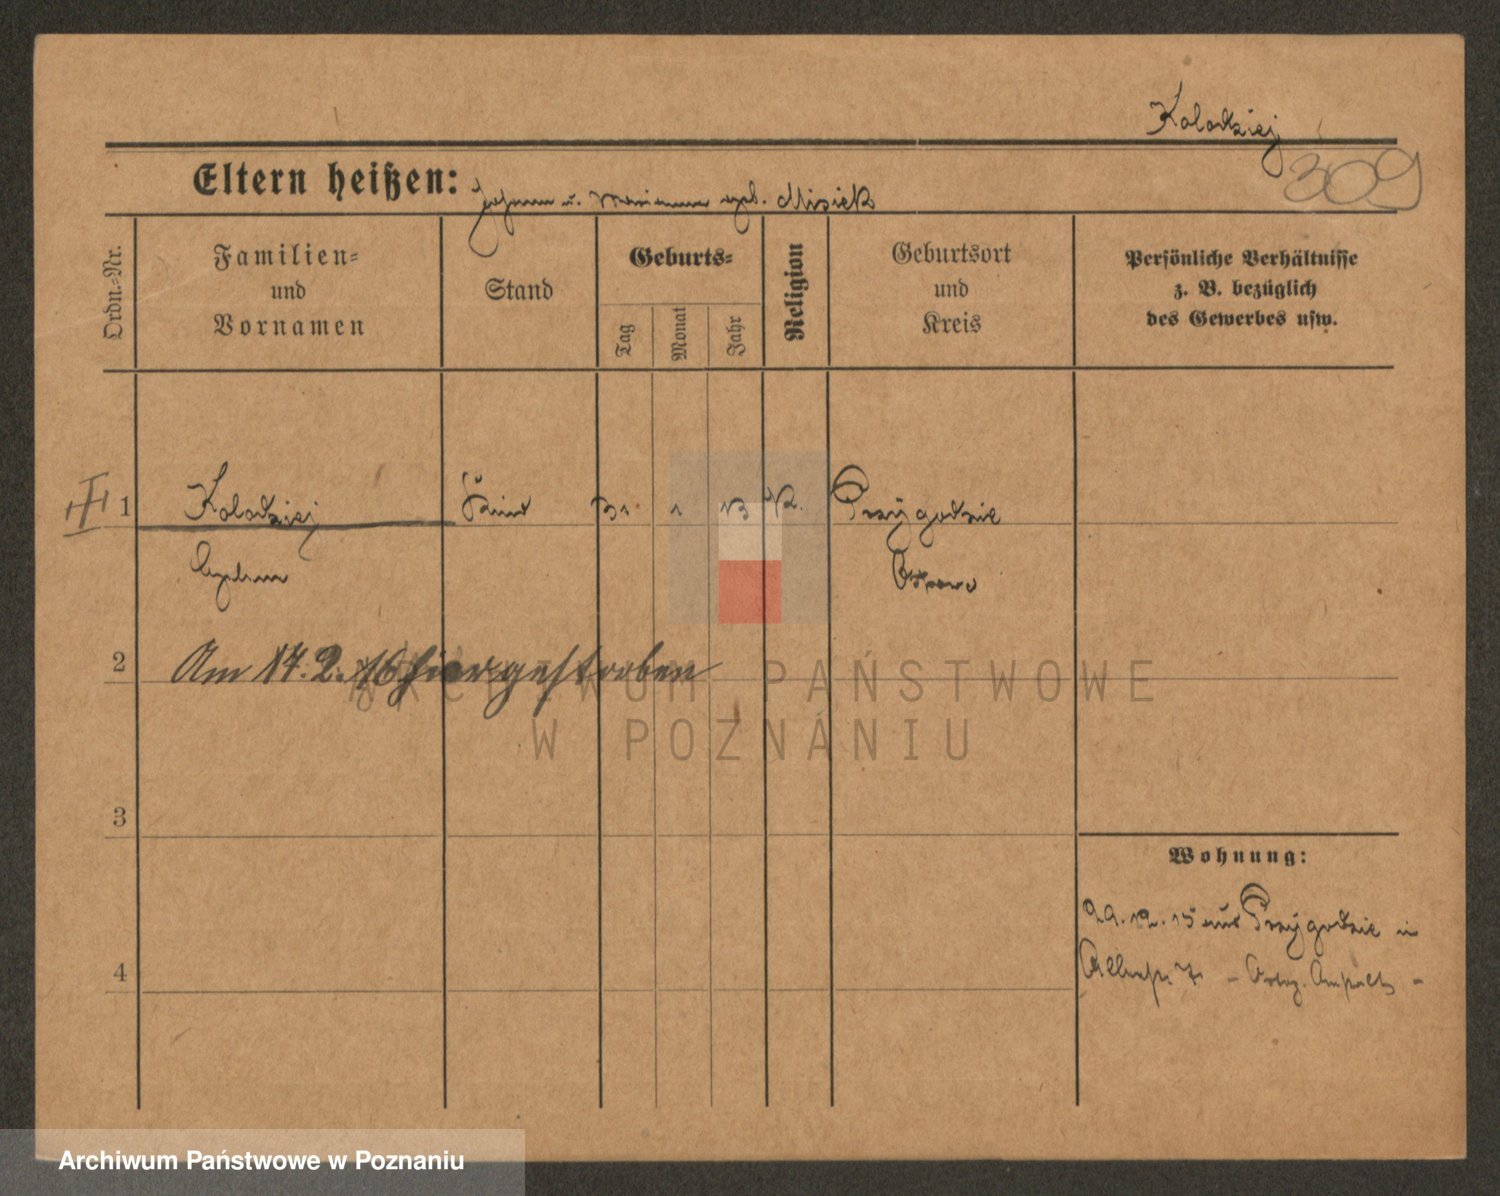 Kolodziej
309
Eltern heißen: Johann u. Marianna geb. Misiek
Ordn.-Nr.
Familien-
und
Vornamen
Stand
Geburts-
Tag
Monat
Jahr
Religion
Geburtsort
und
Kreis
Persönliche Verhältnisse
z. B. bezüglich
des Gewerbes usw.
1 Kolodziej Kind 31 1 13 K. Przygodzie
Ostrowo
2 Am 17.2.16 hier gestorben
3
4
Wohnung:
29.12.15 aus Przygodzie in
ARCHIWUM PAŃSTWOWE
W POZNANIU
Archiwum Państwowe w Poznaniu